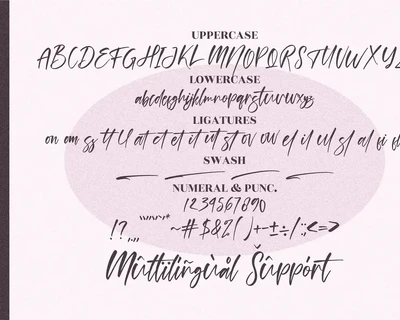 UPPERCASE
ABCDEFGHIJKLMNOPQRSTUVWXYZ
LOWERCASE
abcdefghijklmnopqrstuvwxyz
LIGATURES
on om ss tt ll at ct et it ut st ov ow el il ul sl al
SWASH
NUMERAL & PUNC.
1234567890
!?,,,, ~#$&2()+-±÷/:;<=>
Mùttilïñgùål Šûppórt